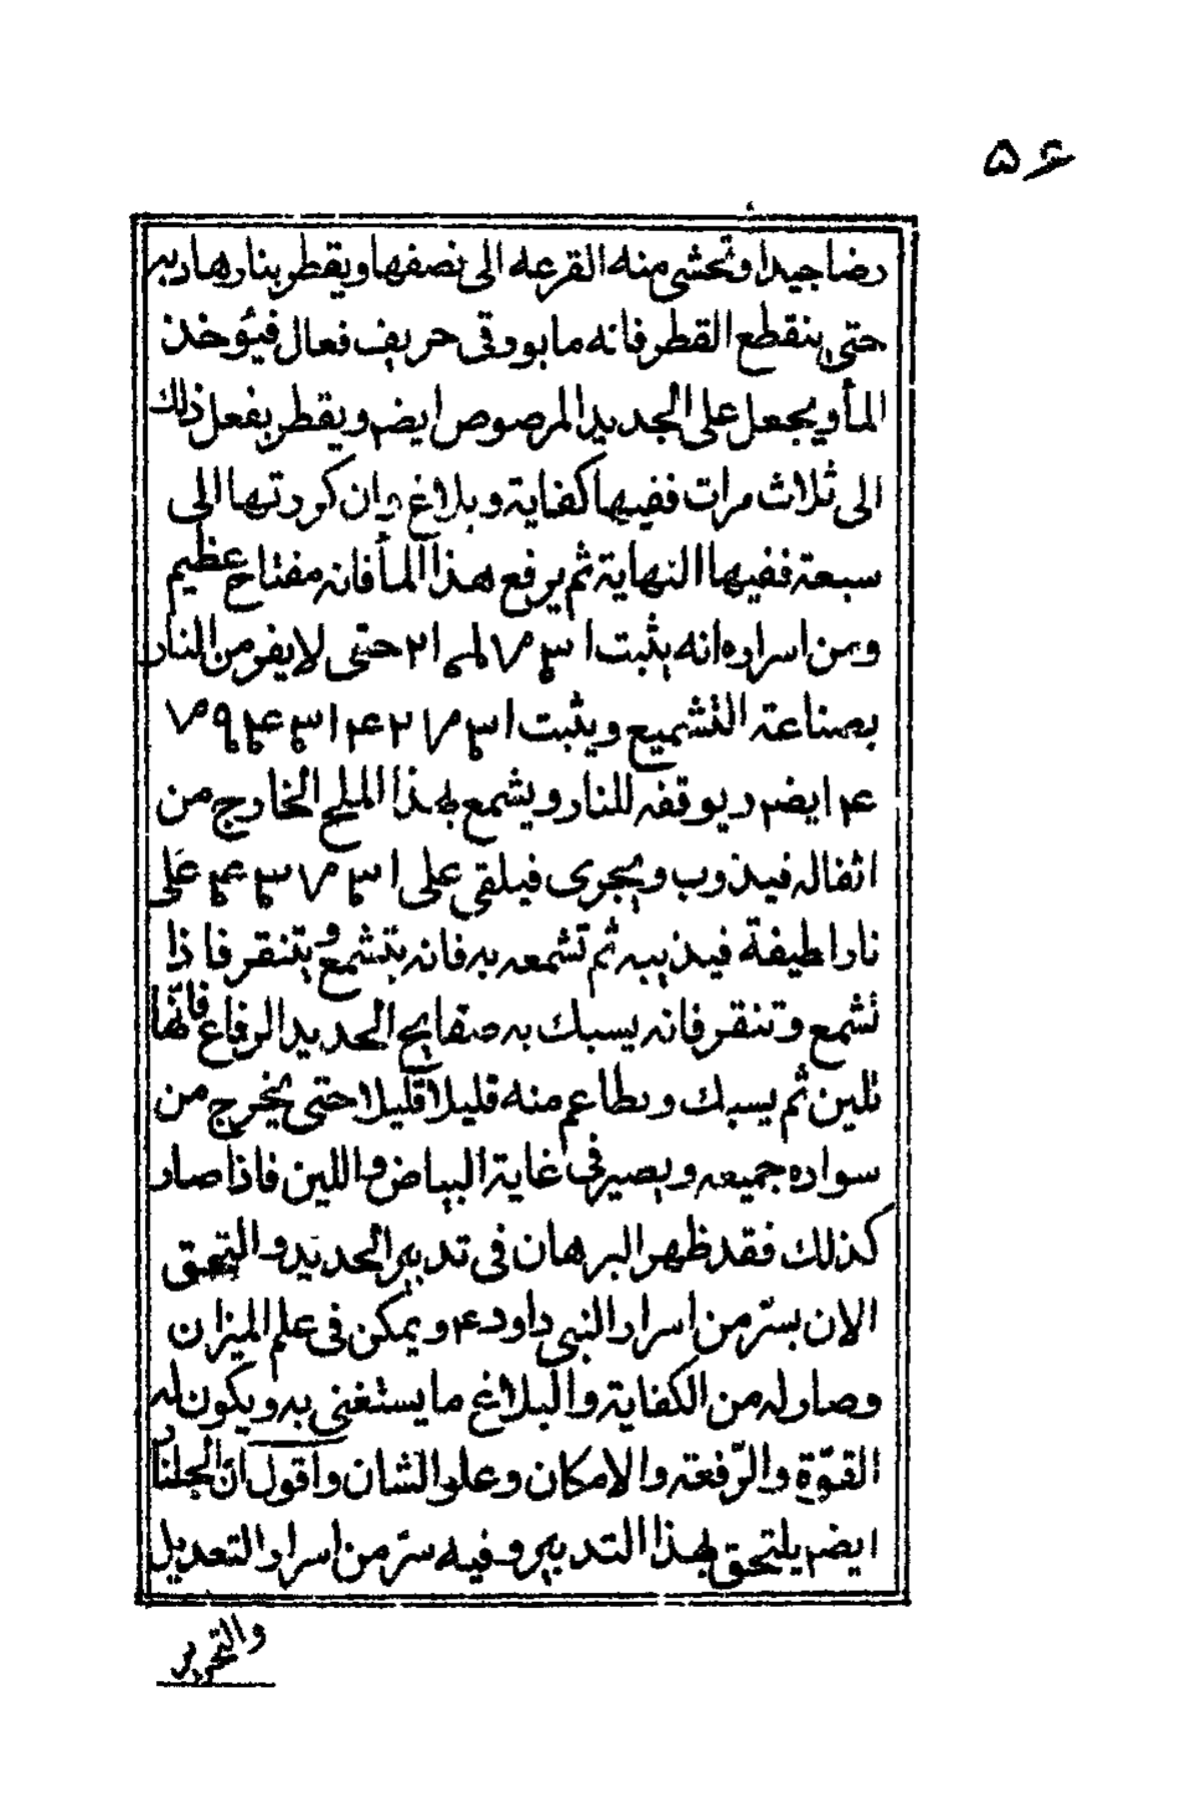 ۵۶
رضا جيدا وتحشى منه القرعه الى نصفها ويقطر بنار هاديه
حتى ينقطع القطر فانه ما بورقى حريف فعال فيئوخذ
المأ ويجعل على الجديد المرصوص ايضم ويقطر يفعل ذلك
الى ثلاث مرات ففيها كفاية وبلاغ وان كررتها الى
سبعة ففيها النهاية ثم يرفع هذا المأ فانه مفتاح عظيم
ومن اسراره انه يثبت حتى لا يفر من النار
بصناعة التشميع ويثبت
ايضم ويوقفه للنار ويشمع بهذا الملح الخارج من
اثفاله فيذوب ويجرى فيلقى على على
نار لطيفة فيذيبه ثم تشمعه به فانه يتشمع ويتنقر فاذا
تشمع وتنقر فانه يسبك به صفايح الحديد الرفاع فانها
تلين ثم يسبك ويطاعم منه قليلا قليلا حتى يخرج من
سواده جميعه ويصير فى غاية البياض واللين فاذا صار
كذلك فقد ظهر البرهان فى تدبير الحديد والتحق
الان بسرّ من اسرار النبى داود ع م ويمكن فى علم الميزان
وصار له من الكفاية والبلاغ ما يستغنى به ويكون له
القوّة والرّفعة والامكان وعلو الشان واقول انّ الجلنار
ايضم يلتحق بهذا التدبير وفيه سرّ من اسرار التعديل
والتحرير